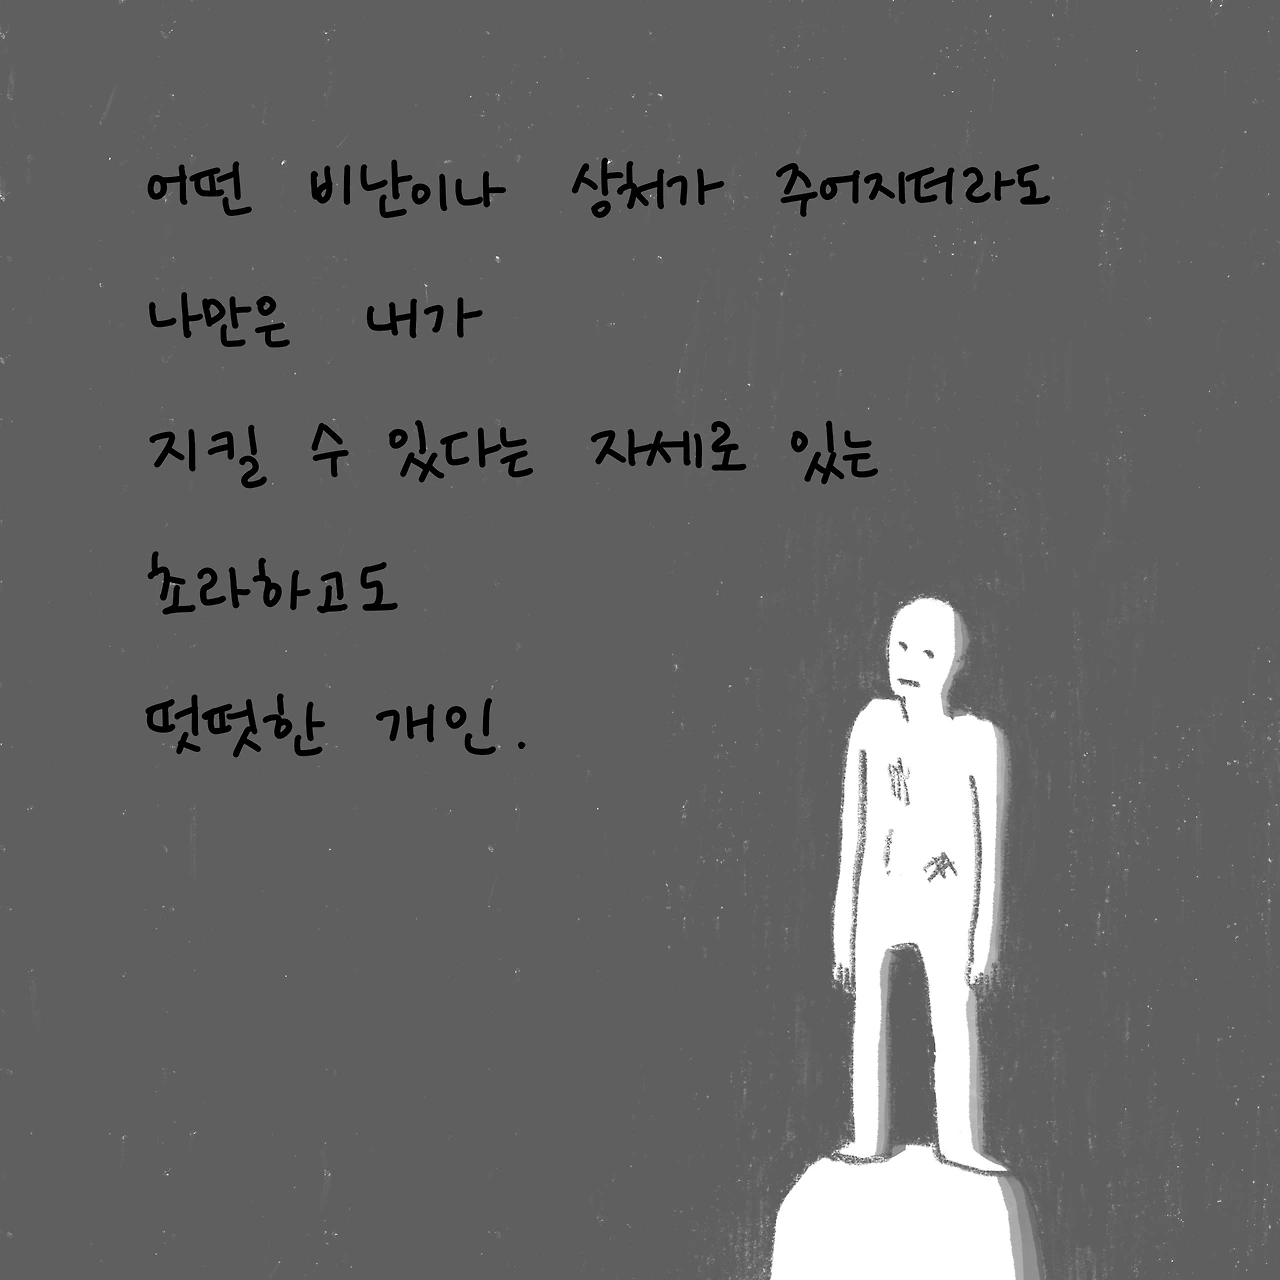 어떤 비난이나 상처가 주어지더라도
나만은 내가
지킬 수 있다는 자세로 있는
초라하고도
떳떳한 개인.